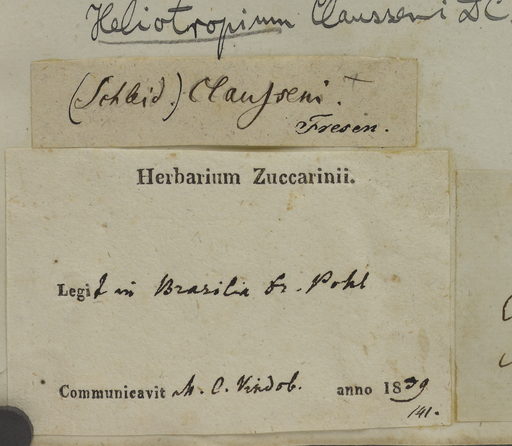 Heliotropium Claussenii DC.
(Schleid.) Clausseni. +
Fresen.
Herbarium Zuccarinii.
Legit in Brasilia Dr. Pohl
Communicavit M. C. Vindob. anno 1839
141.